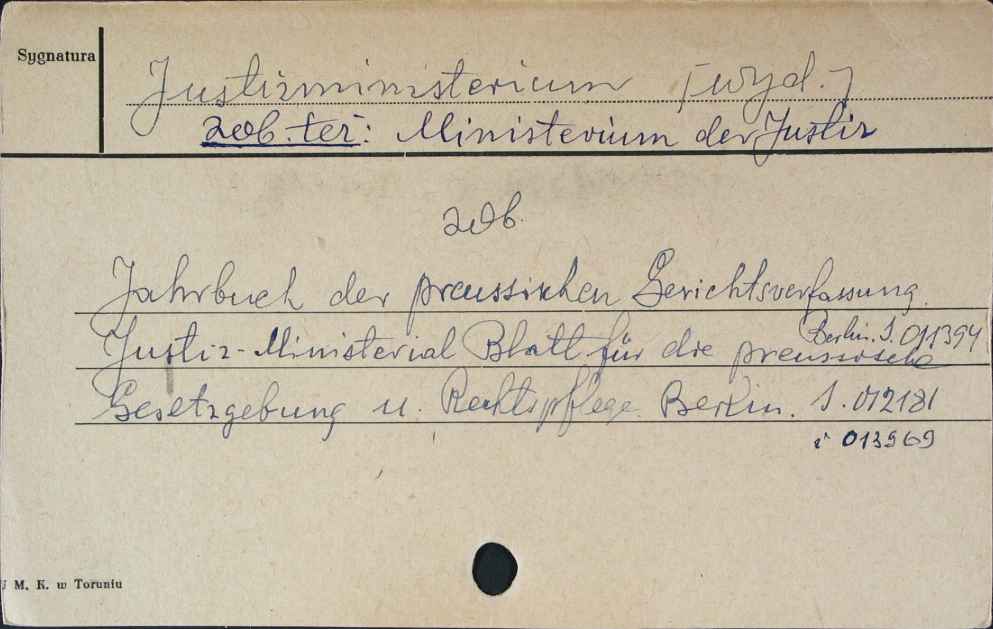 Sygnatura
Justizministerium [wyd.]
zob. też: Ministerium der Justiz
zob.
Jahrbuch der preussischen Gerichtsverfassung.
Berlin. S. 011394
Justiz-Ministerial Blatt für die preussische
Gesetzgebung u. Rechtspflege. Berlin. S. 012181
i 013969
U M. K. w Toruniu